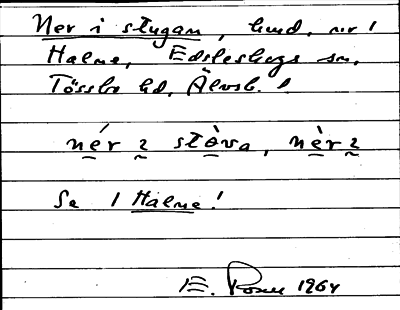 Ner i stugan, hmd. nr 1
Halne, Edsleskogs sn,
Tössbo hd, Älvsb. l.
nér 2 stòva, nèr 2
Se 1 Halne!
E. 1964